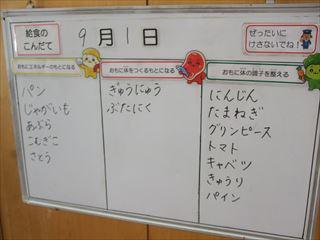 給食の
こんだて
9月1日
ぜったいに
けさないでね!
おもにエネルギーのもとになる
パン
じゃがいも
あぶら
こむぎこ
さとう
おもに体をつくるもとになる
ぎゅうにゅう
ぶたにく
おもに体の調子を整える
にんじん
たまねぎ
グリンピース
トマト
キャベツ
きゅうり
パイン